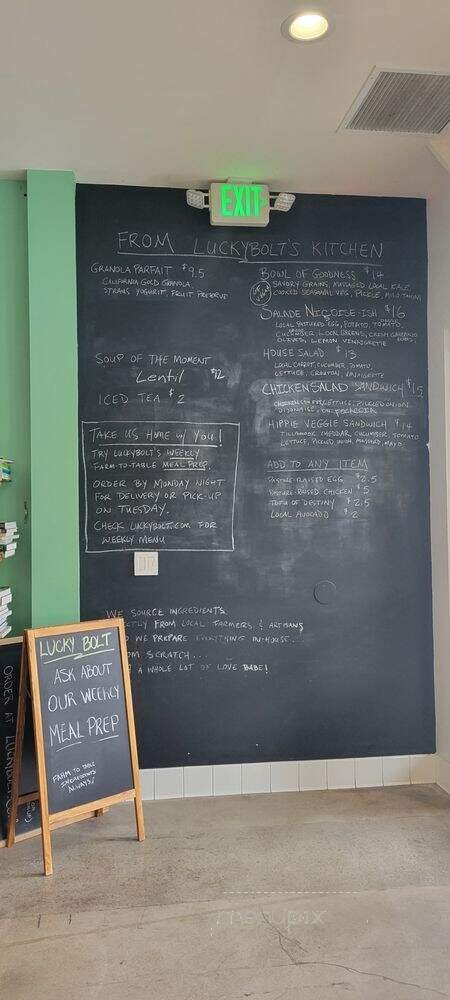 EXIT
FROM LUCKYBOLT'S KITCHEN
GRANOLA PARFAIT $9.5
CALIFORNIA GOLD GRANOLA,
STRAUS YOGURT, FRUIT PRESERVE
SOUP OF THE MOMENT
Lentil $12
ICED TEA $2
TAKE US HOME w/ YOU!
TRY LUCKYBOLT'S WEEKLY
FARM-TO-TABLE MEAL PREP.
ORDER BY MONDAY NIGHT
FOR DELIVERY OR PICK-UP
ON TUESDAY.
CHECK LUCKYBOLT.COM FOR
WEEKLY MENU
BOWL OF GOODNESS $14
SAVORY GRAINS, MASSAGED LOCAL KALE
COOKED SEASONAL VEG, PICKLE, MISO TAHINI
SALADE NIÇOISE-ISH $16
LOCAL PASTURED EGG, POTATO, TOMATO,
CUCUMBER, LOCAL GREENS, CRISPY GARBANZO
OLIVES, LEMON VINAIGRETTE
HOUSE SALAD $13
LOCAL CARROT, CUCUMBER, TOMATO,
LETTUCE, CROUTON, VINAIGRETTE
CHICKEN SALAD SANDWICH $15
LETTUCE, PICKLED ONION
DIJONAISE, ON FOCACCIA
HIPPIE VEGGIE SANDWICH $14
TILLAMOOK CHEDDAR, CUCUMBER, TOMATO
LETTUCE, PICKLED ONION, MUSTARD, MAYO
ADD TO ANY ITEM
PASTURE-RAISED EGG $2.5
PASTURE-RAISED CHICKEN $5
TOFU OF DESTINY $2.5
LOCAL AVOCADO $2
WE SOURCE INGREDIENTS
DIRECTLY FROM LOCAL FARMERS & ARTISANS
WE PREPARE EVERYTHING IN-HOUSE...
FROM SCRATCH...
A WHOLE LOT OF LOVE BABE!
LUCKY BOLT
ASK ABOUT
OUR WEEKLY
MEAL PREP
FARM TO TABLE
INGREDIENTS
ALWAYS!
ORDER AT LUCKYBOLT
menupix